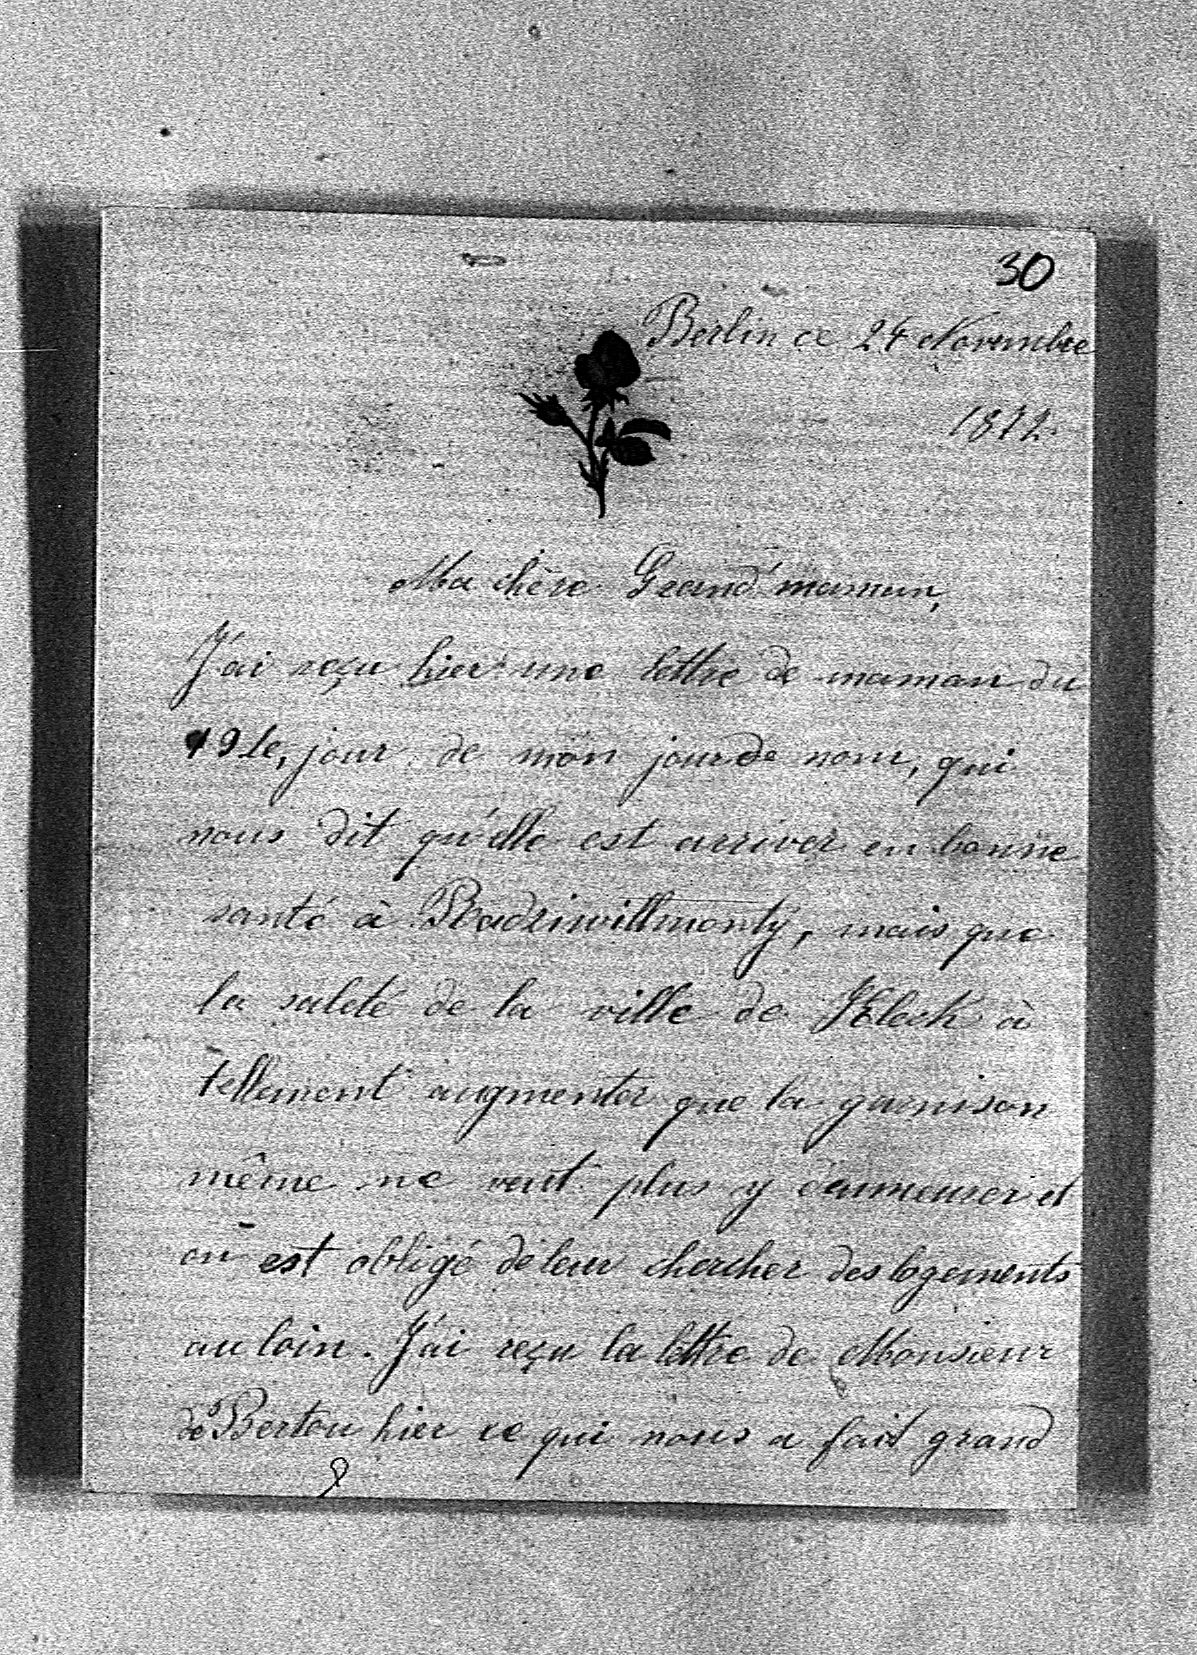 30
Berlin ce 24 Novembre
1872.
Ma chère Grand'maman,
J'ai reçu hier une lettre de maman du
19 le, jour de mon jour de nom, qui
nous dit qu'elle est arriver en bonne
santé à Radziwillmonty, mais que
la saleté de la ville de Kleck à
tellement augmenter que la garnison
même ne veut plus y et
on est obligé de leur chercher des logements
au loin. J'ai reçu la lettre de Monsieur
de Bertou hier ce qui nous a fait grand